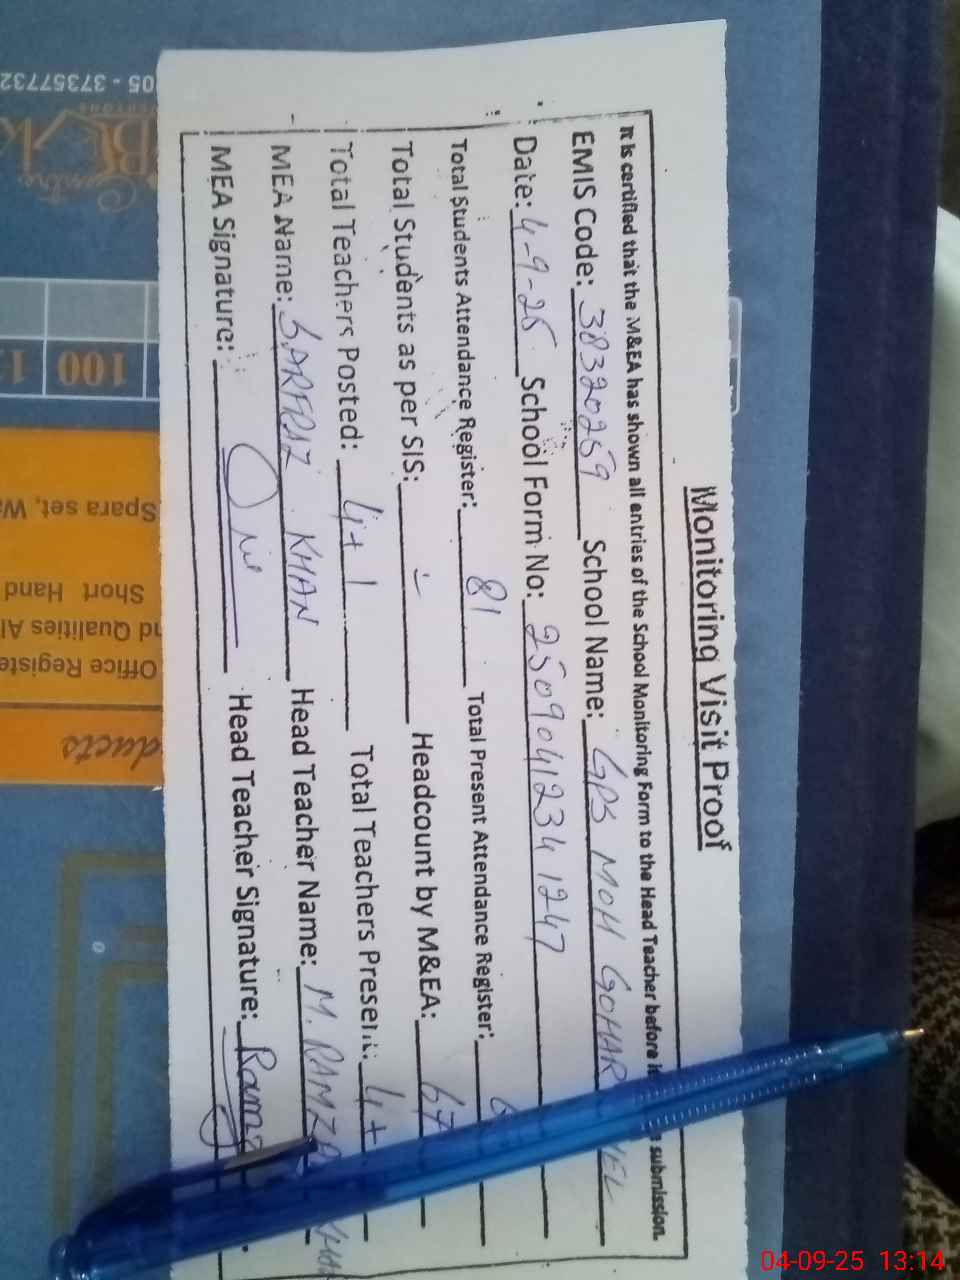 Monitoring Visit Proof
It is certified that the M&EA has shown all entries of the School Monitoring Form to the Head Teacher before submission.
EMIS Code: 38320269 School Name: GPS MOH GOHAR
Date: 4-9-25 School Form No: 2509041234 1247
Total Students Attendance Register: 81 Total Present Attendance Register:
Total Students as per SIS: - Headcount by M&EA: 67
Total Teachers Posted: 4+1 Total Teachers Present: 4+
MEA Name: SARFRAZ KHAN Head Teacher Name: M. RAMZA
MEA Signature: Head Teacher Signature: Ramz
05 - 37357732
Centre
100
Spara set,
Short Hand
nd Qualities
Office Registe
ducts
04-09-25 13:14